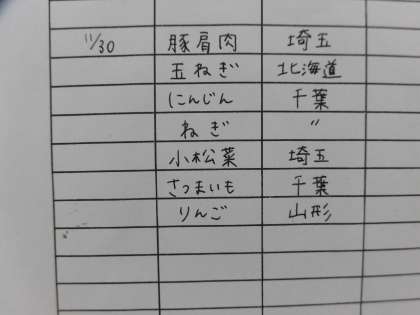 11/30 豚肩肉 埼玉
玉ねぎ 北海道
にんじん 千葉
ねぎ 〃
小松菜 埼玉
さつまいも 千葉
りんご 山形